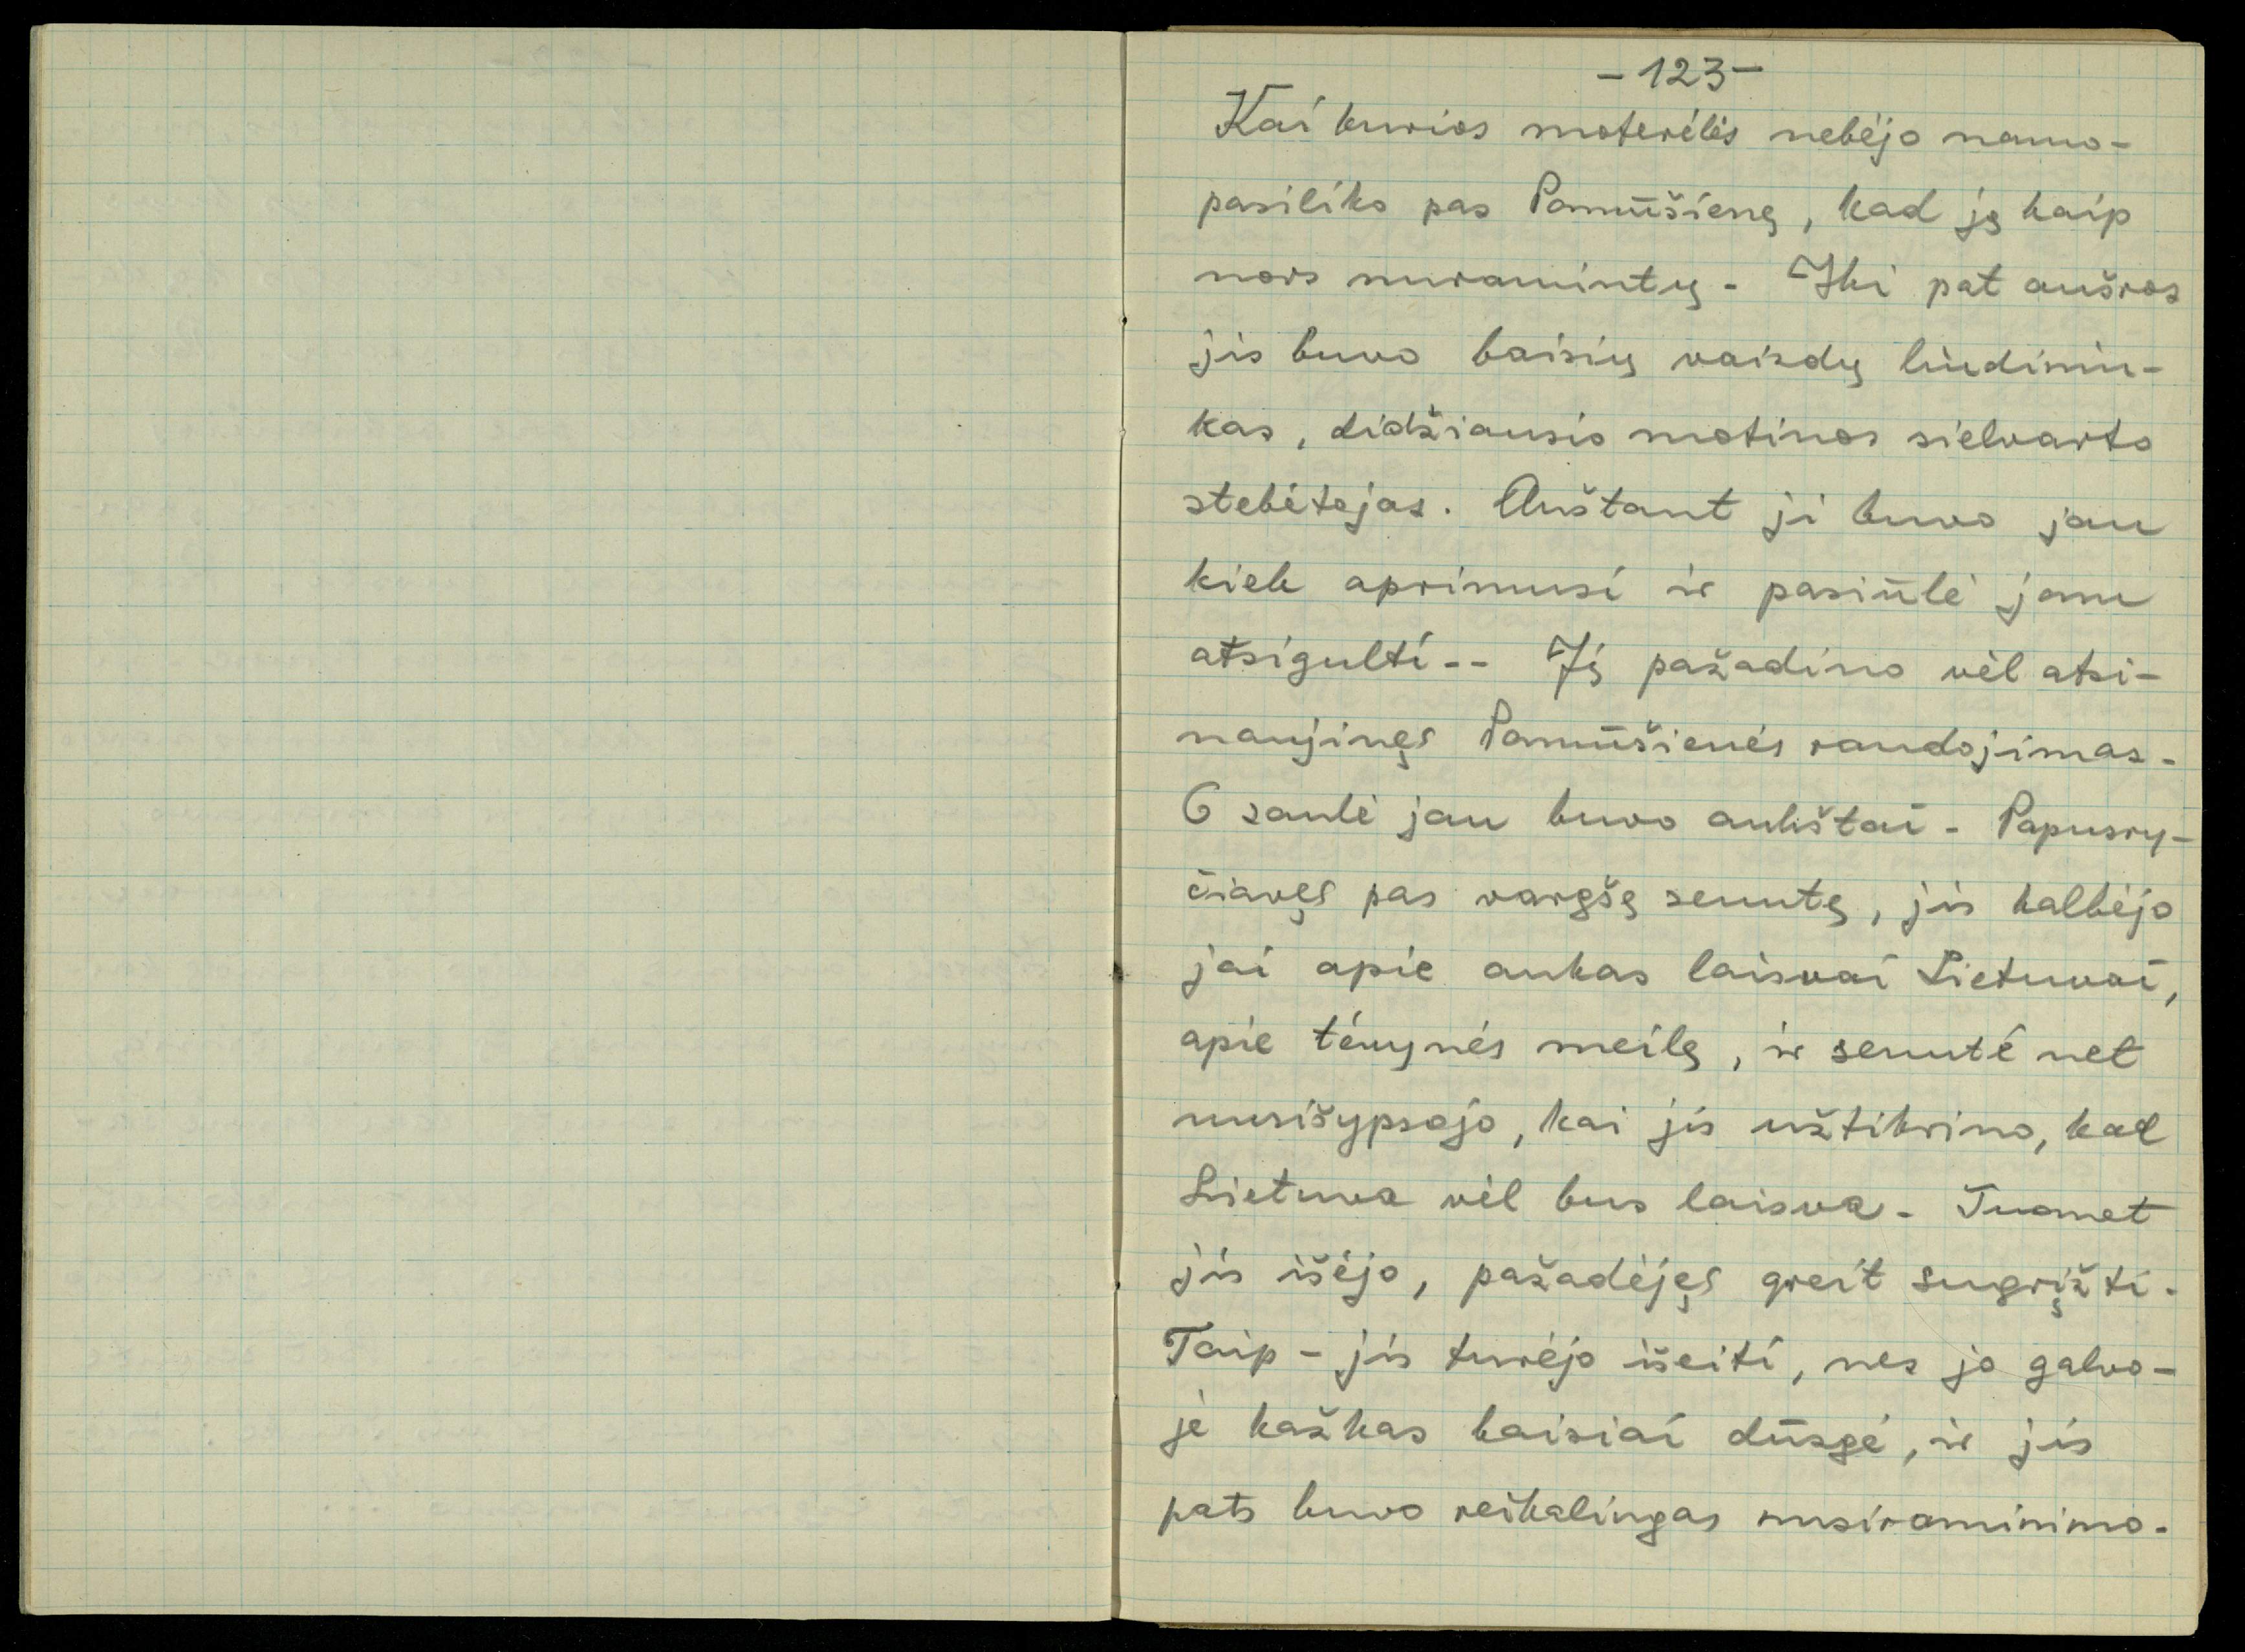 -123-
Kai kurios moterėlės nebėjo namo-
pasiliko pas Pamūšienę, kad ją kaip
nors nuramintų. Iki pat aušros
jis buvo baisių vaizdų liudinin-
kas, didžiausio motinos sielvarto
stebėtojas. Auštant ji buvo jau
kiek aprimusi ir pasiūlė jam
atsigulti.. Jį pažadino vėl atsi-
naujinęs Pamūšienės raudojimas.
O saulė jau buvo aukštai. Papusry-
čiavęs pas vargšę senutę, jis kalbėjo
jai apie aukas laisvai Lietuvai,
apie tėvynės meilę, ir senutė net
nusišypsojo, kai jis užtikrino, kad
Lietuva vėl bus laisva. Tuomet
jis išėjo, pažadėjęs greit sugrįžti.
Taip - jis turėjo išeiti, nes jo galvo-
je kažkas baisiai dūzgė, ir jis
pats buvo reikalingas nusiraminimo.